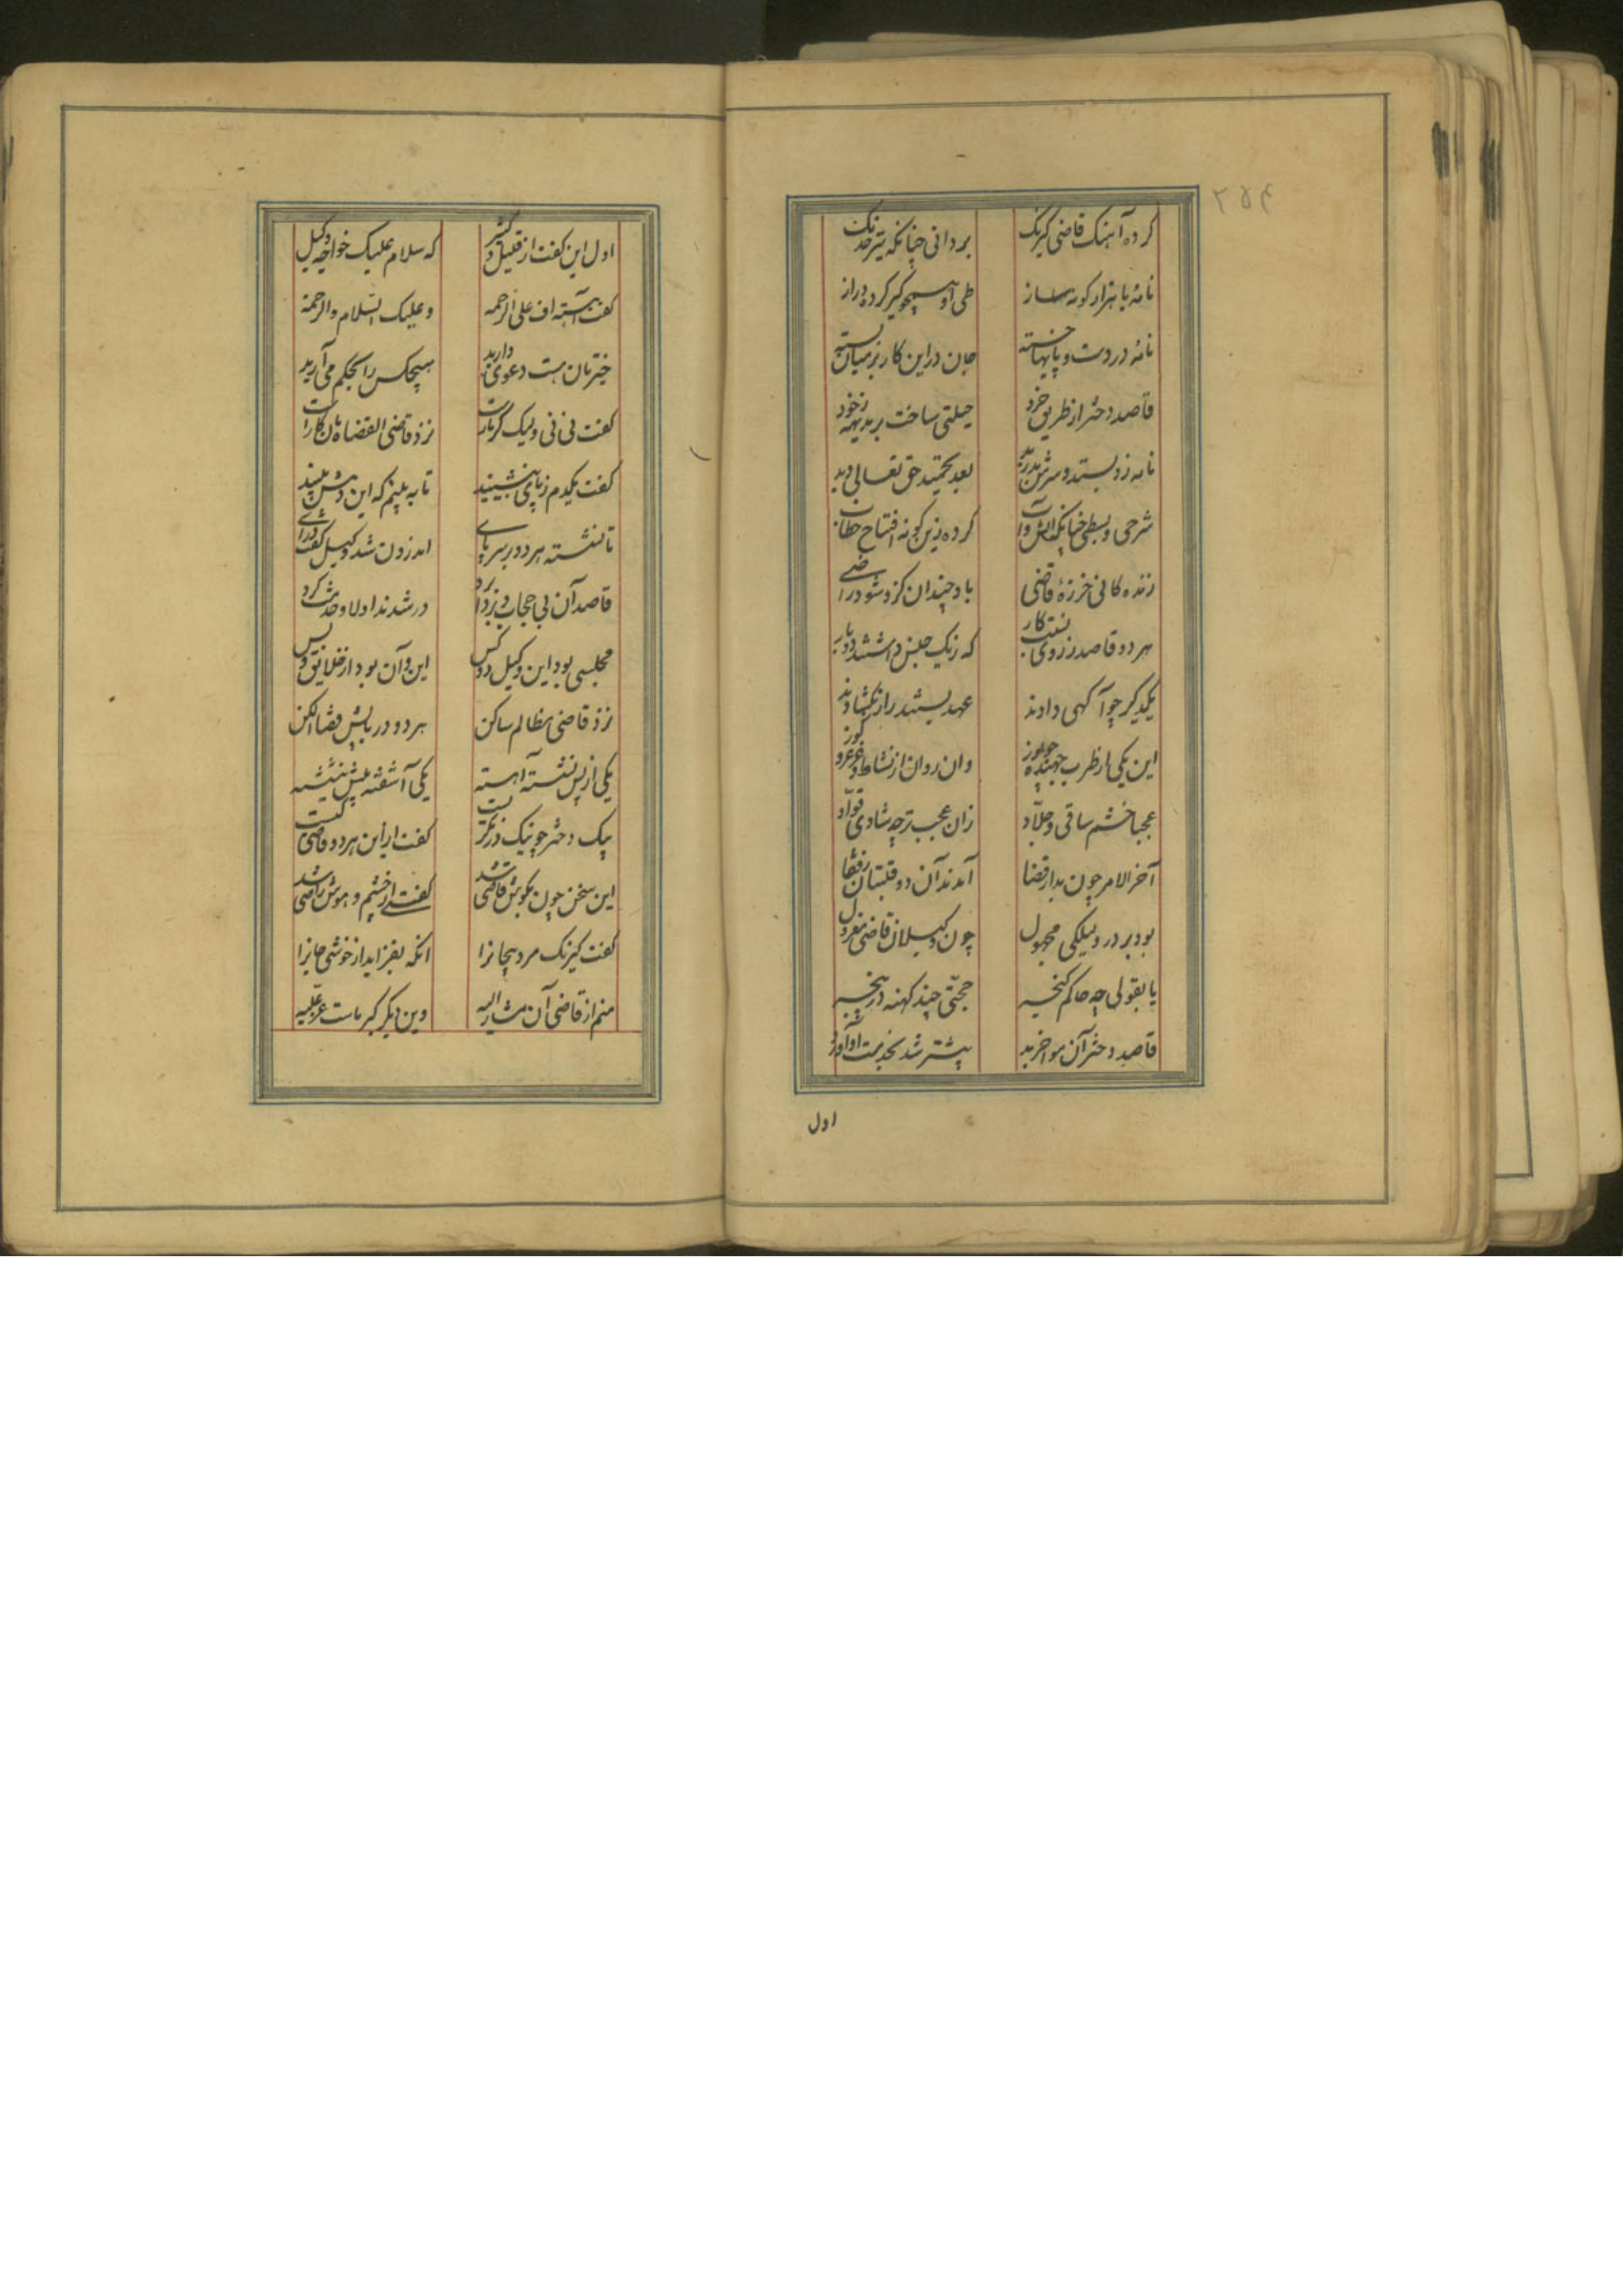 ۲۵۴
کرده آهنگ قاضی کیرنگ بردانی چنانکه تیر خدنگ
نامهٔ با هزار کونه ساز طی او کیر کرده دراز
نامهٔ در دست و پایها خسته جان در این کار بر میان بسته
قاصد دختر از طریق خرد حیلتی ساخت بر بدیهه ز خود
نامه زو بستد و سرش بعد تحمید حق تعالی دید
شرحی و بسطی چنانکه کرده زین کونه افتتاح خطاب
زنده کانی خرزهٔ قاضی باد چندان کزو شود راضی
هر دو قاصد ز روی نسبت کار که ز یک جنس داشتند دو بار
یکدیگر چو آکهی دادند عهد بستند راز بکشادند
این یکی از طرب جهنده چو یوز وان روان از نشاط و غرغرو کوز
عجبا خشم ساقی و جلاد زان عجب تر چه شادی قواد
آخر الامر چون بدار قضا آمدند آن دو قلتبان رفقا
بود بر در وکیلکی مجهول چون وکیلان قاضی معزول
یا بقولی چه حاکم کنجه حجتی چند کهنه در پنجه
قاصد دختر آن مواخر بد پیشتر شد بخدمت
اول
اول این گفت از قلیل و کثیر که سلام علیک خواجه وکیل
گفت آهسته اف علی الرحمه وعلیک السلام والرحمة
خیرتان هست دعوی دارید هیچکس را بحکم می آرید
گفت نی نی ولیک نزد قاضی القضاه مان کار است
گفت یکدم ز پای بنشینید تا به بینم که این
تا نشسته هر دو بر سر پای اندرون شد وکیل گفت درای
قاصد آن بی حجاب و درشدند اولا و خدمت کرد
مجلسی بود این وکیل دو کس این و آن بود از خلایق و بس
نزد قاضی مظالم ساکن هر دو در پیش
یکی از پس نشسته آهسته یکی آشفته پیش بنشسته
پیک دختر چو نیک در نگریست گفت ازین هر دو قاضی کیست
این سخن چون بکوش قاضی شد گفت از خشم و هوش راضی شد
گفت کیرنک مرد بیجا نرا انکه بفزاید از خوشی جانرا
منم از قاضی آن مشار الیه وین دیگر کیر ماست